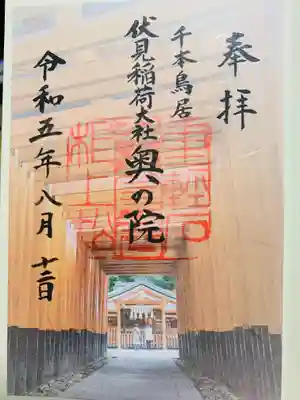 奉拝
千本鳥居
伏見稲荷大社奥の院
令和五年八月十二日